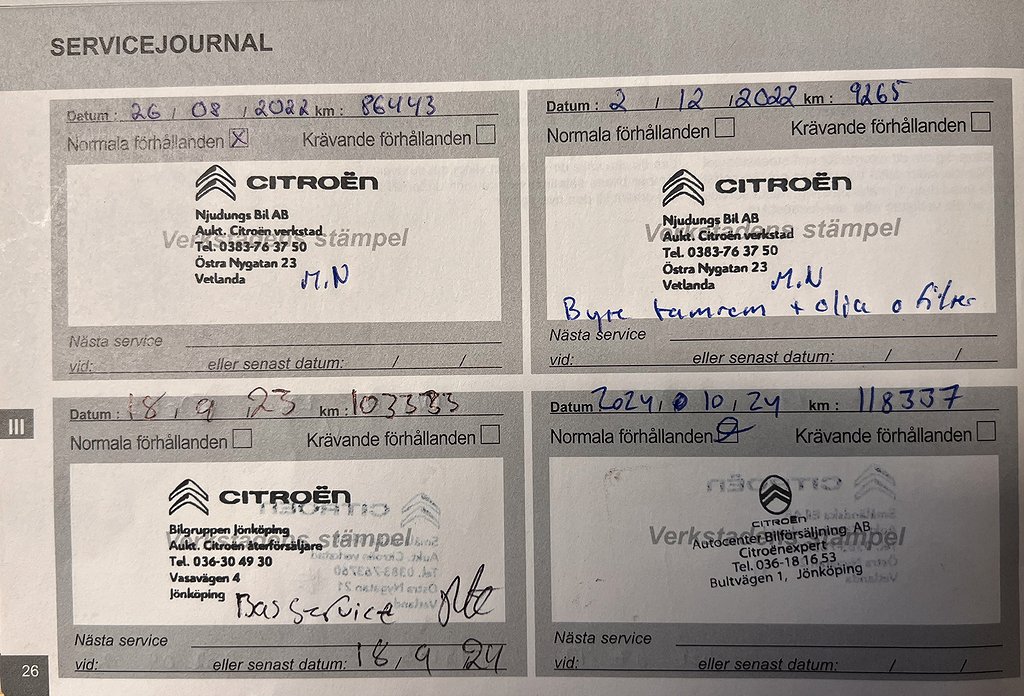 SERVICEJOURNAL
Datum : 26 / 08 / 2022 km : 86443
Normala förhållanden X Krävande förhållanden
CITROËN
Njudungs Bil AB
Aukt. Citroën verkstad
Verkstadens stämpel
Tel. 0383-76 37 50
Östra Nygatan 23
Vetlanda M.N
Nästa service
vid: eller senast datum: / /
Datum : 2 / 12 / 2022 km : 9265
Normala förhållanden Krävande förhållanden
CITROËN
Njudungs Bil AB
Aukt. Citroën verkstad
Verkstadens stämpel
Tel. 0383-76 37 50
Östra Nygatan 23
Vetlanda M.N
Byte kamrem + olja o filter
Nästa service
vid: eller senast datum: / /
III
Datum : 18, 9, 23 km : 103333
Normala förhållanden Krävande förhållanden
CITROËN
Bilgruppen Jönköping
Aukt. Citroën återförsäljare
Verkstadens stämpel
Tel. 036-30 49 30
Vasavägen 4
Jönköping
Bas service
Nästa service
vid: eller senast datum: 18, 9 24
Datum 2024, 10, 24 km : 118337
Normala förhållanden Krävande förhållanden
CITROËN
Autocenter Bilförsäljning AB
Verkstadens stämpel
Citroënexpert
Tel. 036-18 16 53
Bultvägen 1, Jönköping
Nästa service
vid: eller senast datum: / /
26